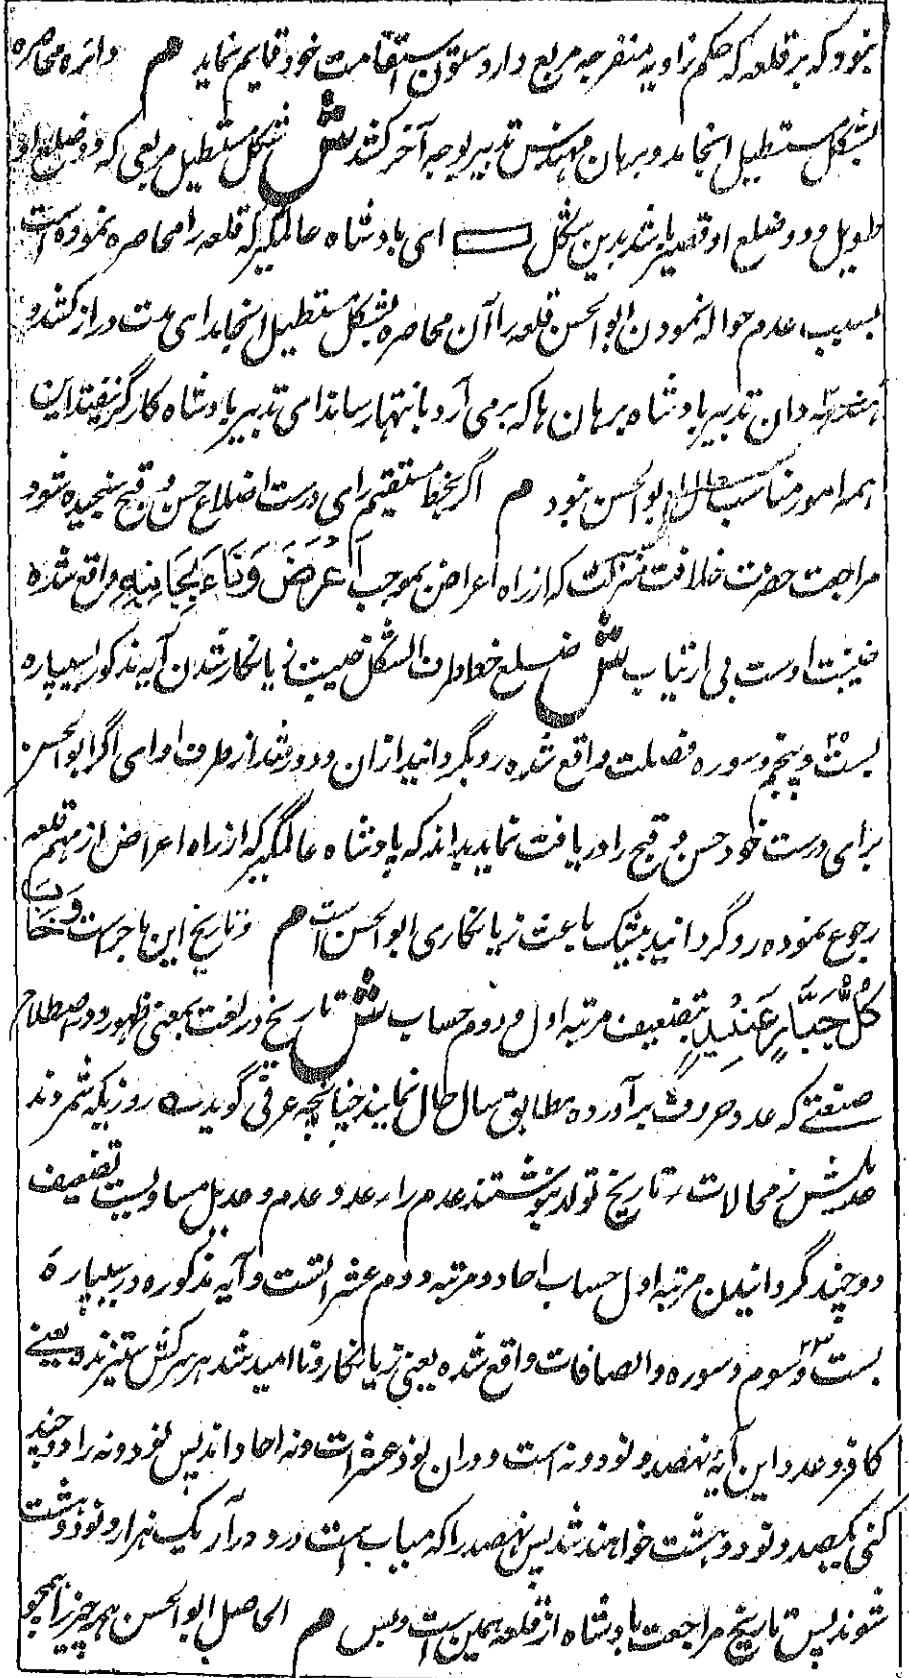 نبود که بر قلعه که حکم زاویه منفرجه مربع دارد ستون استقامت خود قایم نماید م دائره محاصره
بشکل مستطیل انجامد و برهان مهندس تدبیر بوجه آخر کشد ش شکل مستطیل مربعی که دو ضلع او
طویل و دو ضلع او قصیر باشد بدین شکل ای بادشاه عالمگیر که قلعه را محاصره نموده است
بسبب عدم حواله نمودن ابوالحسن قلعه را آن محاصره بشکل مستطیل انجامد ای مدت دراز کشد و
هندسه دان تدبیر بادشاه برهان ها که برمی آرد بانتها رساند ای تدبیر بادشاه کارگر نیفتد این
همه امور مناسب حال ابوالحسن نبود م اگر بخط مستقیم رای درست اضلاع حسن و قبح سنجیده شود
مراجعت حضرت خلافت منزلت که از راه اعراض بموجب اَعْرَضَ وَنَاءَ بِجَانِبِهٖ واقع شده
خیبت اوست بی ارتیاب ش ضلع خط اطراف الشکل خیبت زیانکار شدن آیه مذکور بسیپاره
بست و پنجم ۲۵ و سوره فصلت واقع شده روبگردانید ازان و دور شد از طرف او ای اگر ابوالحسن
برای درست خود حسن و قبح را دریافت نماید بداند که پادشاه عالمگیر که از راه اعراض از مهم قلعه
رجوع نموده روگردانید بیشک باعث زیانکاری ابوالحسن است م و تاریخ این ماجراست وَخَابَ
كُلُّ جَبَّارٍ عَنِيْدٍ بتضعیف مرتبه اول و دوم حساب ش تاریخ در لغت بمعنی ظهور و در اصطلاح
صنعتے که عدد حروف برآورده مطابق سال حال نمایند چنانچه عرفی گوید ه روزیکه شمردند
عدیلش ز محالات ٫ تاریخ تولد بنوشتند عدم را ٫ عدد عدم و عدیل مساویست تضعیف
دو چند گردانیدن مرتبه اول حساب احاد و مرتبه دوم عشرات ست و آیه مذکوره در سیپاره
بست و سوم ۲۳ و سوره والصافات واقع شده یعنی زیانکار و ناامید شد هر سرکش ستیزنده یعنے
کافر و عدد این آیه نهصد و نود و نه است و دران نود عشرات و نه احاد اند پس نود و نه را دوچند
کنی یکصد و نود و هشت خواهند شد پس نهصد را که میاب است درو درآر یک هزار و نود و هشت
شوند پس تاریخ مراجعت بادشاه از قلعه همین است و بس م الحاصل ابوالحسن هر چیز را همچو